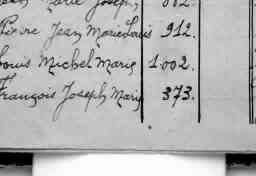 Marie Joseph, 882.
Pierre Jean Marie Louis 912.
Louis Michel Marie 1.002.
François Joseph Marie 373.